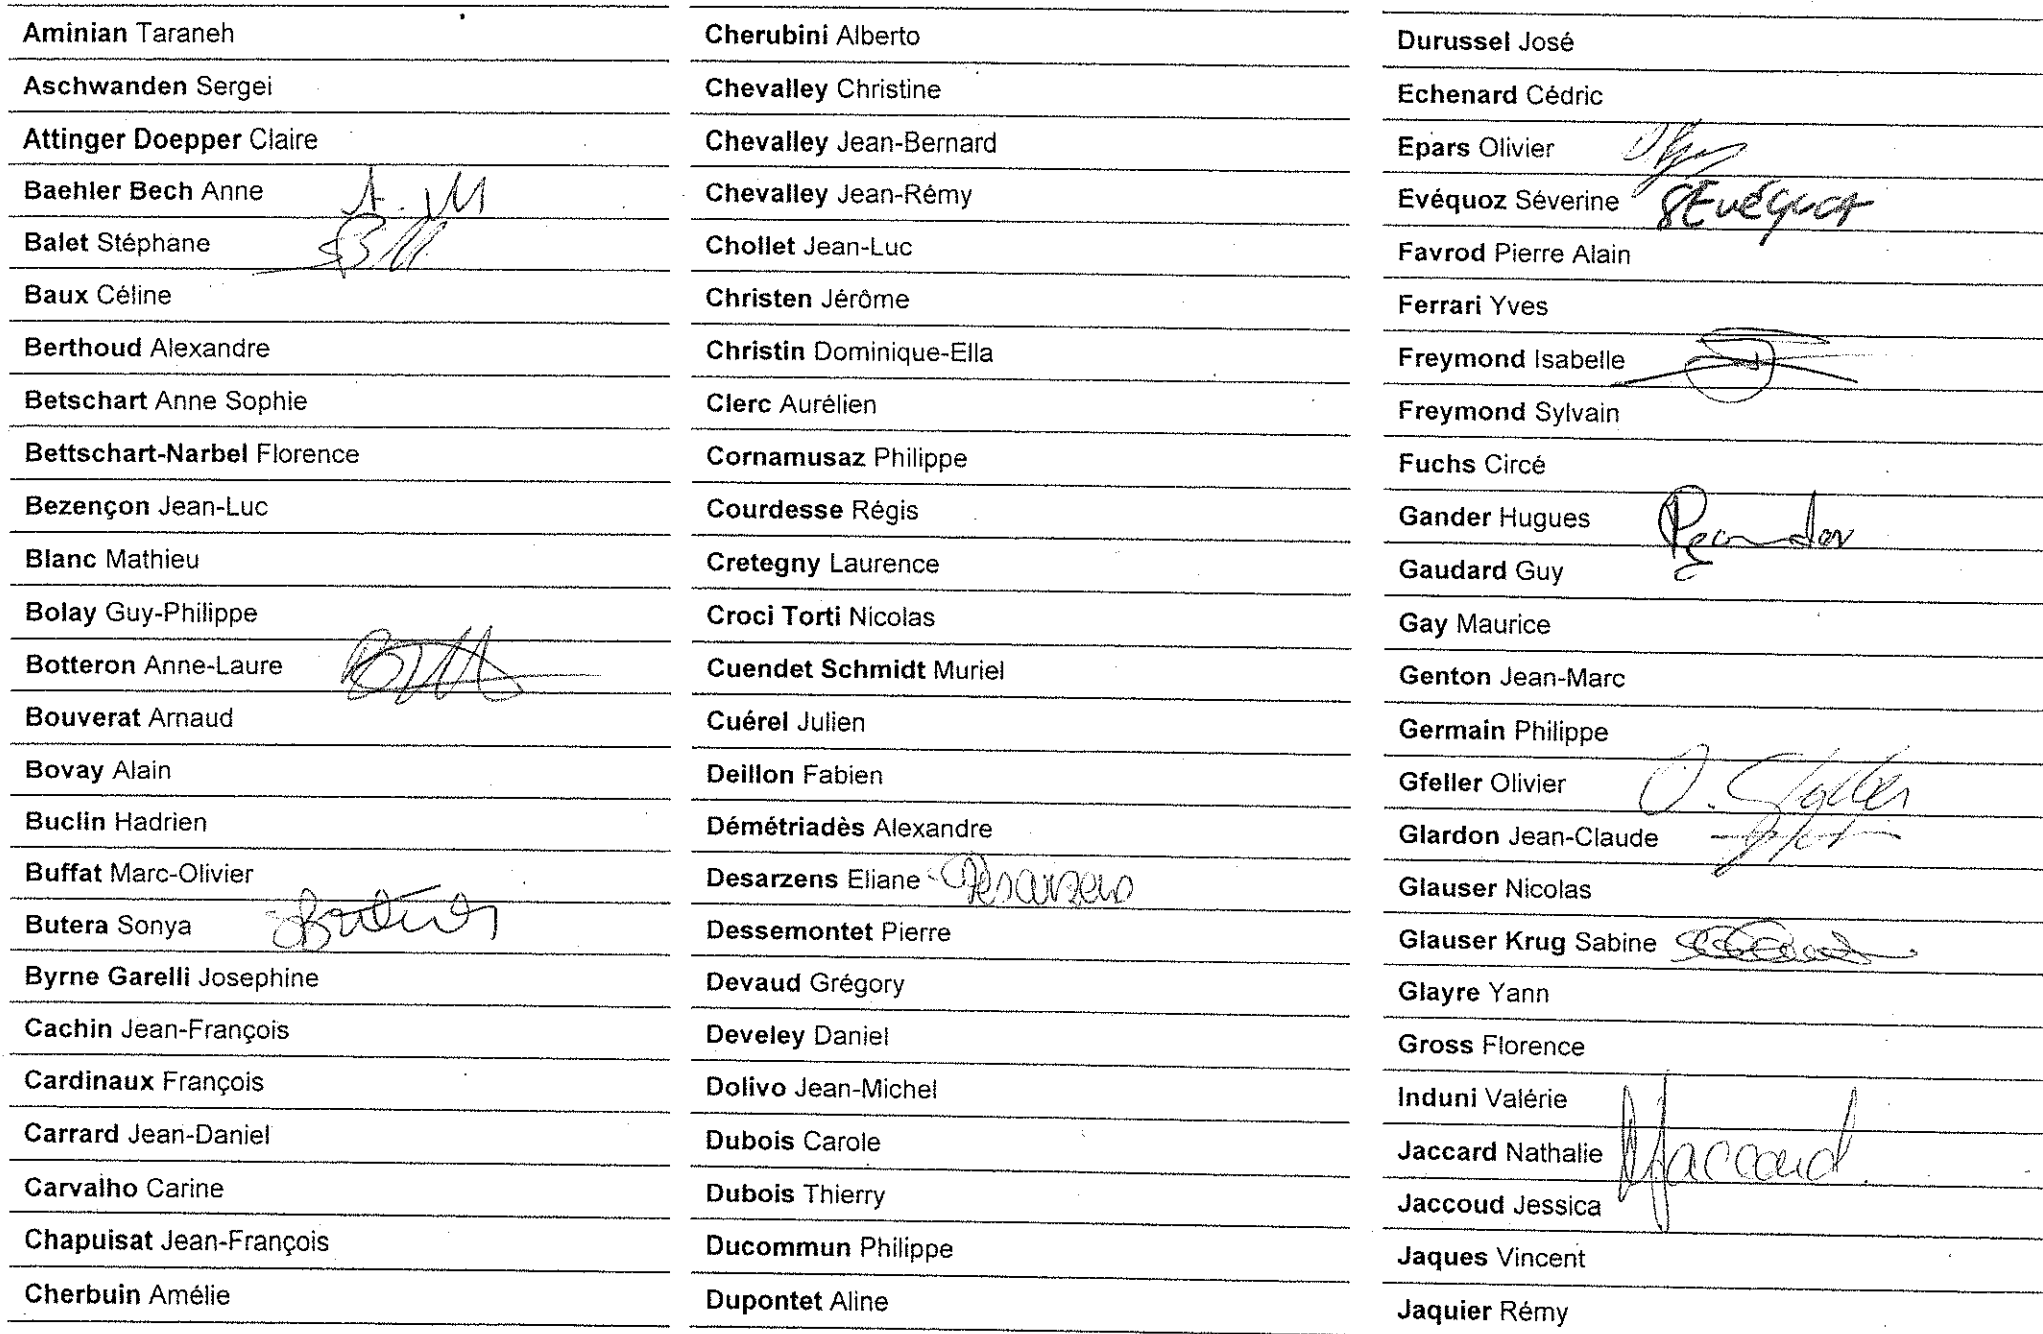 Aminian Taraneh
Aschwanden Sergei
Attinger Doepper Claire
Baehler Bech Anne
Balet Stéphane
Baux Céline
Berthoud Alexandre
Betschart Anne Sophie
Bettschart-Narbel Florence
Bezençon Jean-Luc
Blanc Mathieu
Bolay Guy-Philippe
Botteron Anne-Laure
Bouverat Arnaud
Bovay Alain
Buclin Hadrien
Buffat Marc-Olivier
Butera Sonya
Byrne Garelli Josephine
Cachin Jean-François
Cardinaux François
Carrard Jean-Daniel
Carvalho Carine
Chapuisat Jean-François
Cherbuin Amélie
Cherubini Alberto
Chevalley Christine
Chevalley Jean-Bernard
Chevalley Jean-Rémy
Chollet Jean-Luc
Christen Jérôme
Christin Dominique-Ella
Clerc Aurélien
Cornamusaz Philippe
Courdesse Régis
Cretegny Laurence
Croci Torti Nicolas
Cuendet Schmidt Muriel
Cuérel Julien
Deillon Fabien
Démétriadès Alexandre
Desarzens Eliane Desarzens
Dessemontet Pierre
Devaud Grégory
Develey Daniel
Dolivo Jean-Michel
Dubois Carole
Dubois Thierry
Ducommun Philippe
Dupontet Aline
Durussel José
Echenard Cédric
Epars Olivier
Evéquoz Séverine
Favrod Pierre Alain
Ferrari Yves
Freymond Isabelle
Freymond Sylvain
Fuchs Circé
Gander Hugues
Gaudard Guy
Gay Maurice
Genton Jean-Marc
Germain Philippe
Gfeller Olivier O. Gfeller
Glardon Jean-Claude
Glauser Nicolas
Glauser Krug Sabine
Glayre Yann
Gross Florence
Induni Valérie
Jaccard Nathalie Jaccard
Jaccoud Jessica
Jaques Vincent
Jaquier Rémy